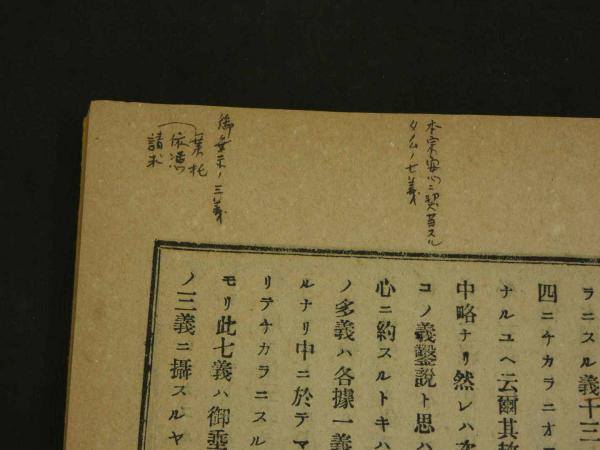 本宗安心ニ契当スル
タノムノ七義
御聖示ノ三義
業托
依憑
請求
ラニスル義十三
四ニチカラニオ
ナルユヘ云爾其
中略ナリ然レハ
コノ義鑿説ト思ハ
心ニ約スルトキハ
ノ多義ハ各據一義
ルナリ中ニ於テマ
リテチカラニスル
モリ此七義ハ御聖
ノ三義ニ攝スルヤ